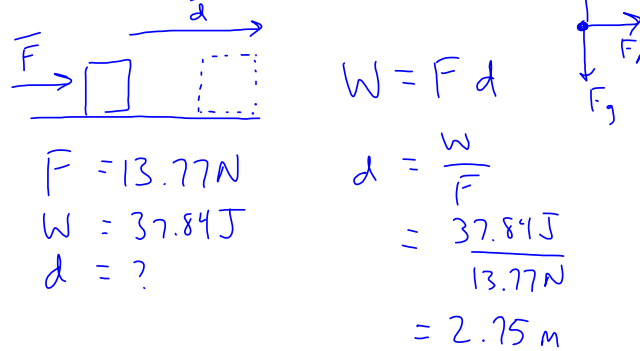 d
F
F = 13.77N
W = 37.84J
d = ?
W = F d
d = W
F
= 37.84J
13.77N
= 2.75 m
Fg